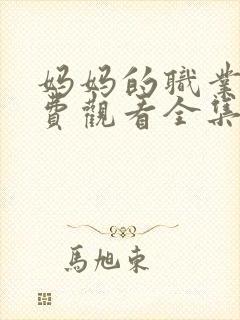 妈妈的職業
費觀看全集
馬旭東